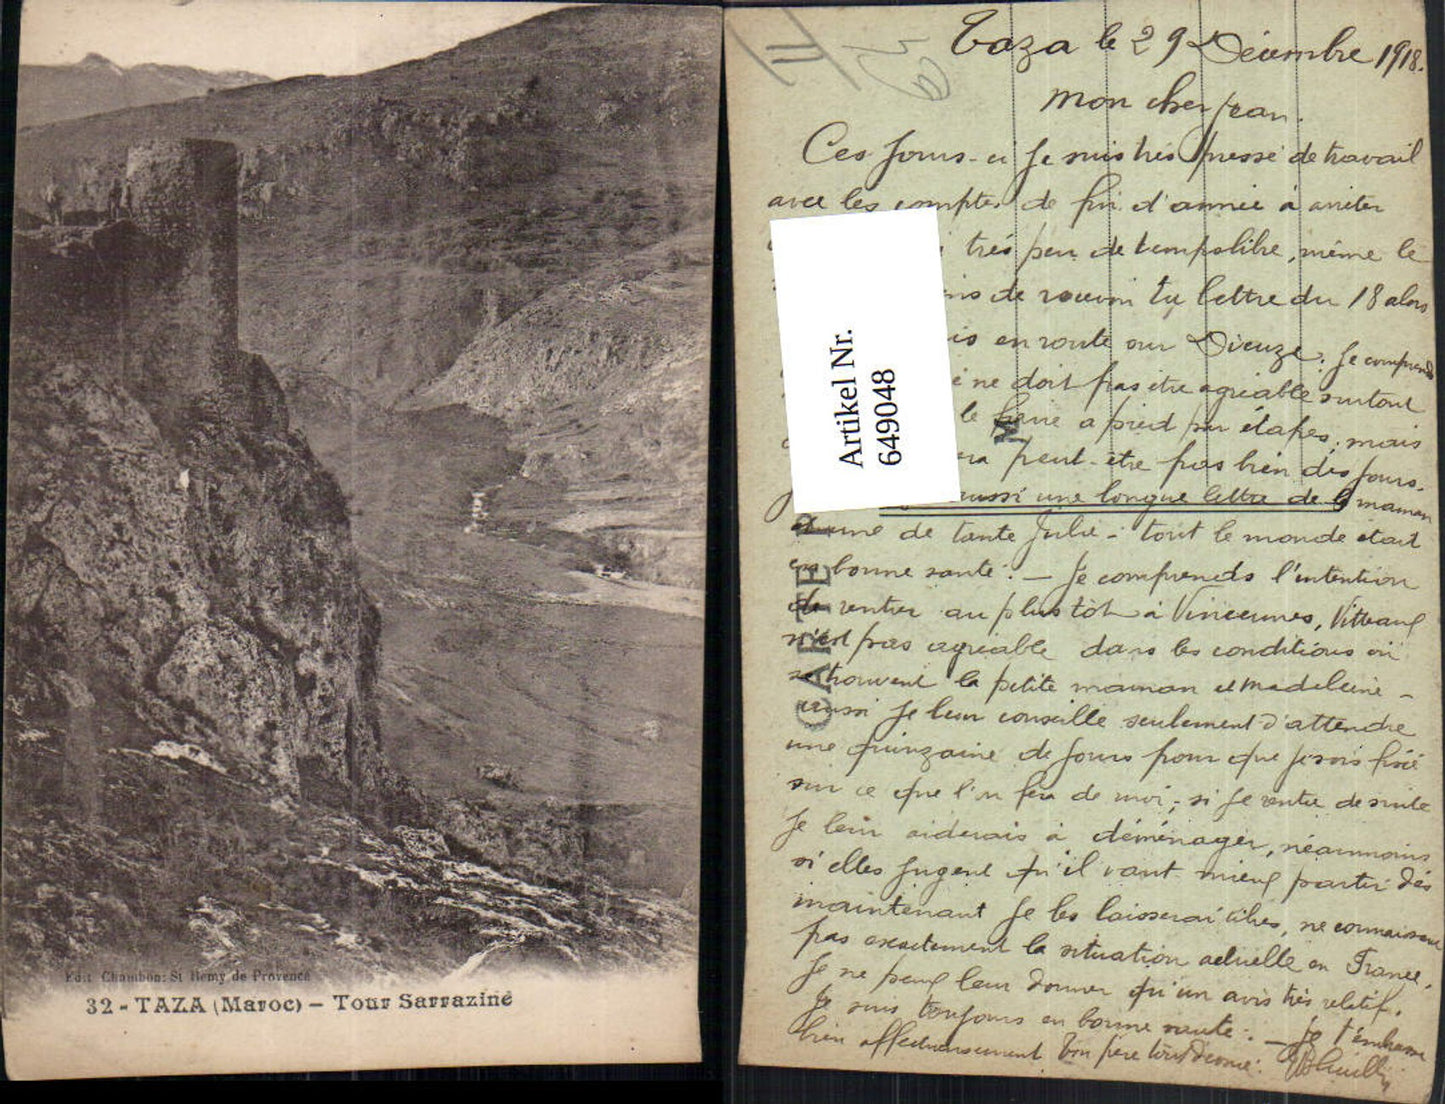 Edit. Chambon: St Remy de Provence
32 - TAZA (Maroc) – Tour Sarrazine
Taza le 29 Décembre 1918.
Mon cher Jean.
Ces jours-ci je suis très pressé de travail
avec les comptes de fin d'année à arrêter
très peu de temps libre, même le
de recevoir ta lettre du 18 alors
en route sur Dieuze. Je comprends
ne doit pas être agréable surtout
le faire a pied par étapes, mais
peut-être pas bien des jours.
aussi une longue lettre de la maman
de tante Julie - tout le monde était
en bonne santé. — Je comprends l'intention
de rentrer au plus tôt à Vincennes, Vitteaux
n'est pas agréable dans les conditions où
se trouvent la petite maman et Madeleine -
aussi je leur conseille seulement d'attendre
une quinzaine de jours pour que je sois fixé
sur ce que l'on fera de moi; si je rentre de suite
je leur aiderais à déménager, néanmoins
si elles jugent qu'il vaut mieux partir dès
maintenant je les laisserai libres, ne connaissant
pas exactement la situation actuelle en France,
je ne peux leur donner qu'un avis très relatif.
Je suis toujours en bonne santé. — Je t'embrasse
bien affectueusement Ton père tout dévoué.
CARTE
M
Artikel Nr.
649048